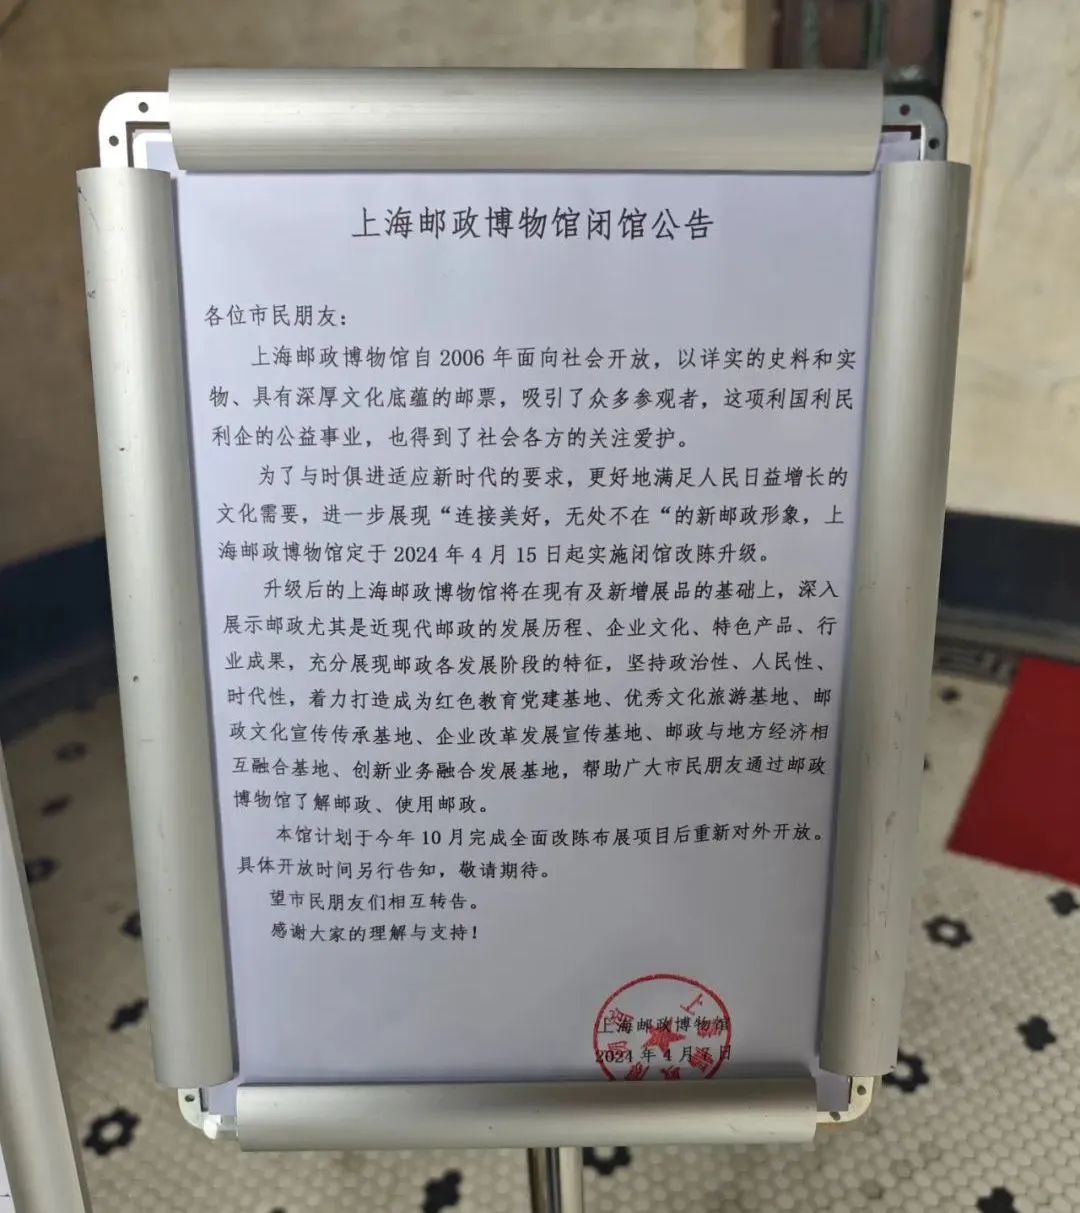 上海邮政博物馆闭馆公告
各位市民朋友：
上海邮政博物馆自 2006 年面向社会开放，以详实的史料和实
物、具有深厚文化底蕴的邮票，吸引了众多参观者，这项利国利民
利企的公益事业，也得到了社会各方的关注爱护。
为了与时俱进适应新时代的要求，更好地满足人民日益增长的
文化需要，进一步展现“连接美好，无处不在“的新邮政形象，上
海邮政博物馆定于 2024 年 4 月 15 日起实施闭馆改陈升级。
升级后的上海邮政博物馆将在现有及新增展品的基础上，深入
展示邮政尤其是近现代邮政的发展历程、企业文化、特色产品、行
业成果，充分展现邮政各发展阶段的特征，坚持政治性、人民性、
时代性，着力打造成为红色教育党建基地、优秀文化旅游基地、邮
政文化宣传传承基地、企业改革发展宣传基地、邮政与地方经济相
互融合基地、创新业务融合发展基地，帮助广大市民朋友通过邮政
博物馆了解邮政、使用邮政。
本馆计划于今年 10 月完成全面改陈布展项目后重新对外开放。
具体开放时间另行告知，敬请期待。
望市民朋友们相互转告。
感谢大家的理解与支持！
上海邮政博物馆
2024 年 4 月 日